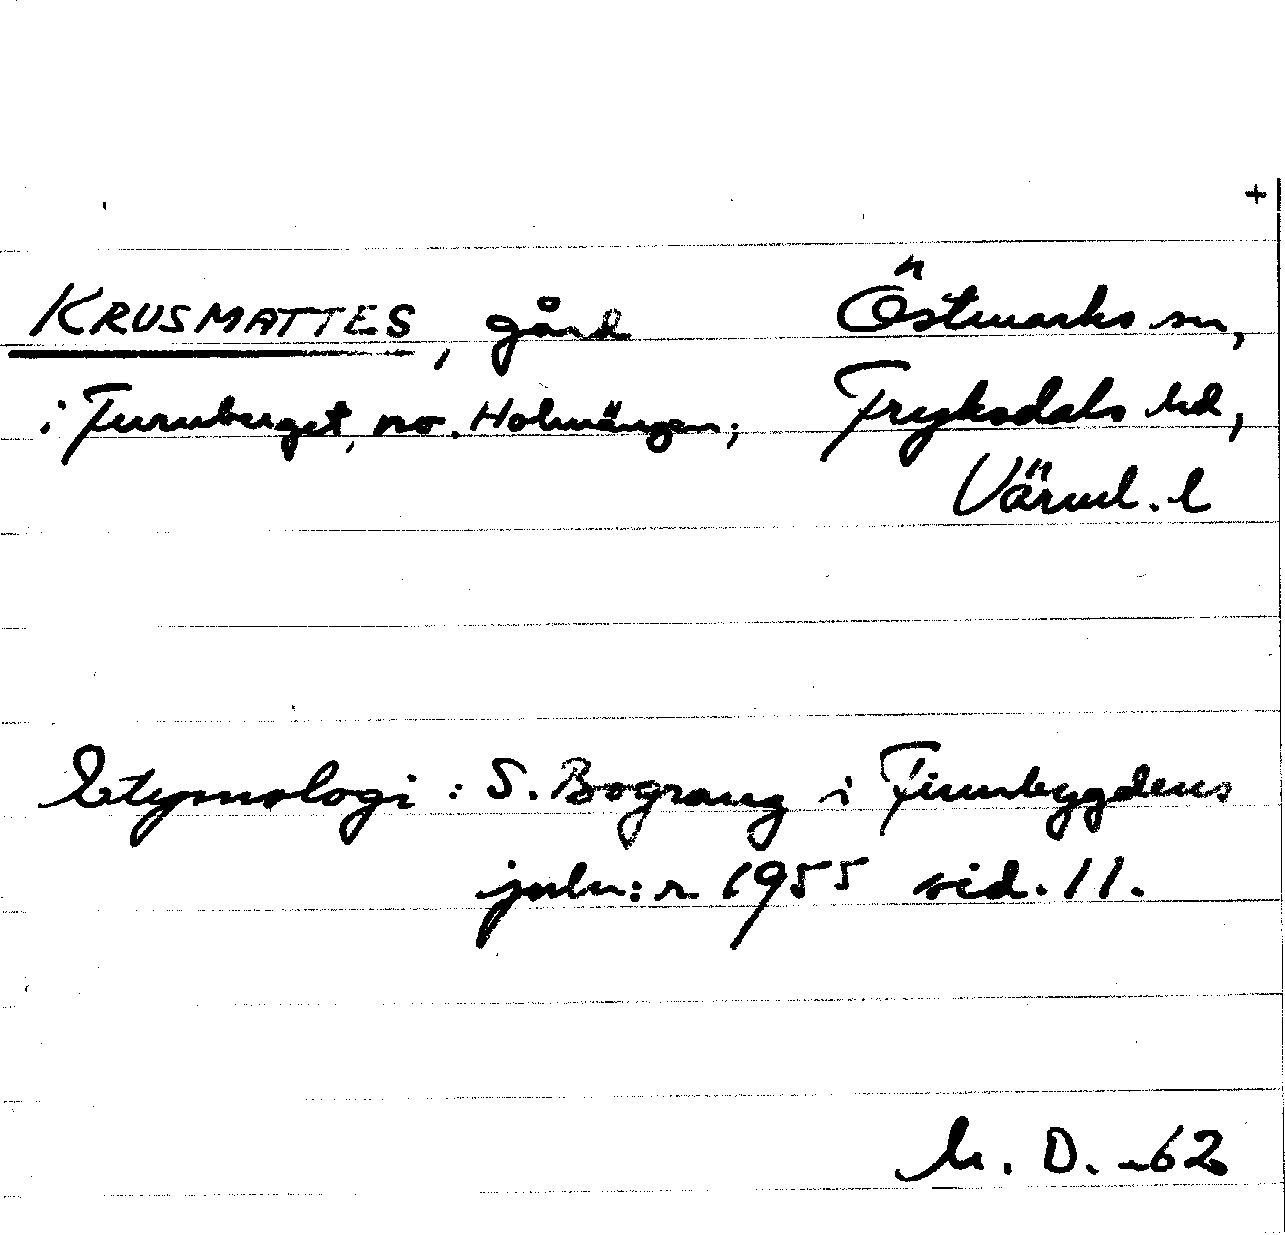 +
KRUSMATTES, gård Östmarks sn,
i Furuberget, no. Holmängen; Fryksdals hd,
Värml. l
Etymologi: S. Bograng i Finnbygdens
juln:r 1955 sid. 11.
D. -62